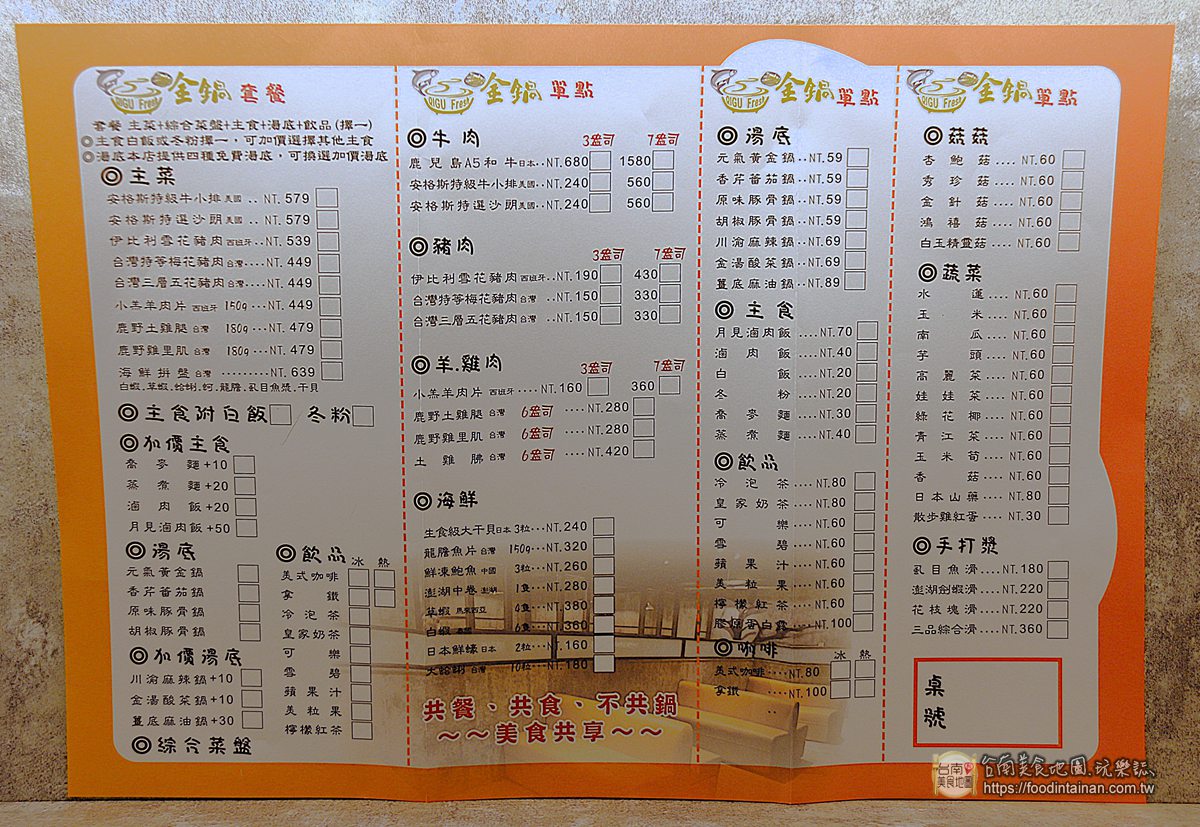 QIGU Fresh 金鍋 套餐
套餐 主菜+綜合菜盤+主食+湯底+飲品(擇一)
◎主食白飯或冬粉擇一，可加價選擇其他主食
◎湯底本店提供四種免費湯底，可換選加價湯底
◎主菜
安格斯特級牛小排 美國 .. NT. 579
安格斯特選沙朗 美國 .. NT. 579
伊比利雪花豬肉 西班牙 .. NT. 539
台灣特等梅花豬肉 台灣 .... NT. 449
台灣三層五花豬肉 台灣 .... NT. 449
小羔羊肉片 西班牙 150g ... NT. 449
鹿野土雞腿 台灣 180g ... NT. 479
鹿野雞里肌 台灣 180g ... NT. 479
海鮮拼盤 台灣 ......... NT. 639
白蝦.草蝦.蛤蜊.蚵.龍膽.虱目魚漿.干貝
◎主食附白飯 冬粉
◎加價主食
蕎麥麵+10
蒸煮麵+20
滷肉飯+20
月見滷肉飯+50
◎湯底
元氣黃金鍋
香芹蕃茄鍋
原味豚骨鍋
胡椒豚骨鍋
◎加價湯底
川渝麻辣鍋+10
金湯酸菜鍋+10
薑底麻油鍋+30
◎綜合菜盤
◎飲品 冰 熱
美式咖啡
拿鐵
冷泡茶
皇家奶茶
可樂
雪碧
蘋果汁
美粒果
檸檬紅茶
QIGU Fresh 金鍋 單點
◎牛肉 3盎司 7盎司
鹿兒島A5和牛 日本 .. NT. 680 1580
安格斯特級牛小排 美國 .. NT. 240 560
安格斯特選沙朗 美國 .. NT. 240 560
◎豬肉 3盎司 7盎司
伊比利雪花豬肉 西班牙 .. NT. 190 430
台灣特等梅花豬肉 台灣 .. NT. 150 330
台灣三層五花豬肉 台灣 .. NT. 150 330
◎羊.雞肉 3盎司 7盎司
小羔羊肉片 西班牙 .... NT. 160 360
鹿野土雞腿 台灣 6盎司 .... NT. 280
鹿野雞里肌 台灣 6盎司 .... NT. 280
土雞腓 台灣 6盎司 .... NT. 420
◎海鮮
生食級大干貝 日本 3粒 ... NT. 240
龍膽魚片 台灣 150g ... NT. 320
鮮凍鮑魚 中國 3粒 ... NT. 260
澎湖中卷 澎湖 1隻 ... NT. 280
草蝦 馬來西亞 4隻 ... NT. 380
白蝦 6隻 ... NT. 360
日本鮮蠔 日本 2粒 ... NT. 160
大蛤蜊 台灣 10粒 ... NT. 180
共餐、共食、不共鍋
～～美食共享～～
QIGU Fresh 金鍋 單點
◎湯底
元氣黃金鍋 .. NT. 59
香芹蕃茄鍋 .. NT. 59
原味豚骨鍋 .. NT. 59
胡椒豚骨鍋 .. NT. 59
川渝麻辣鍋 .. NT. 69
金湯酸菜鍋 .. NT. 69
薑底麻油鍋 .. NT. 89
◎主食
月見滷肉飯 .... NT. 70
滷肉飯 .... NT. 40
白飯 .... NT. 20
冬粉 .... NT. 20
蕎麥麵 .... NT. 30
蒸煮麵 .... NT. 40
◎飲品
冷泡茶 .... NT. 80
皇家奶茶 .... NT. 80
可樂 .... NT. 60
雪碧 .... NT. 60
蘋果汁 .... NT. 60
美粒果 .... NT. 60
檸檬紅茶 .... NT. 60
膠原蛋白露 .... NT. 100
◎咖啡 冰 熱
美式咖啡 .... NT. 80
拿鐵 .... NT. 100
QIGU Fresh 金鍋 單點
◎菇菇
杏鮑菇 .... NT. 60
秀珍菇 .... NT. 60
金針菇 .... NT. 60
鴻禧菇 .... NT. 60
白玉精靈菇 .... NT. 60
◎蔬菜
水蓮 .... NT. 60
玉米 .... NT. 60
南瓜 .... NT. 60
芋頭 .... NT. 60
高麗菜 .... NT. 60
娃娃菜 .... NT. 60
綠花椰 .... NT. 60
青江菜 .... NT. 60
玉米筍 .... NT. 60
香菇 .... NT. 60
日本山藥 .... NT. 80
散步雞紅蛋 .... NT. 30
◎手打漿
虱目魚滑 .... NT. 180
澎湖劍蝦滑 .... NT. 220
花枝塊滑 .... NT. 220
三品綜合滑 .... NT. 360
桌號
台南美食地圖
台南美食地圖.玩樂誌
https://foodintainan.com.tw